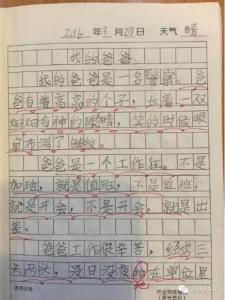 2016年3月27日 天气 晴
我的爸爸
我的爸爸是一名警察。爸
爸有着高高的个子,长着一双
炯炯有神的眼睛,笑的时候眼
里布满了皱纹。
爸爸是一个工作狂。不是
加班,就是值班,不是值班,
就是开会,不是开会,就是出
差。
爸爸工作很辛苦,经常三
天两头,没日没夜地在单位里
JXXJXJ